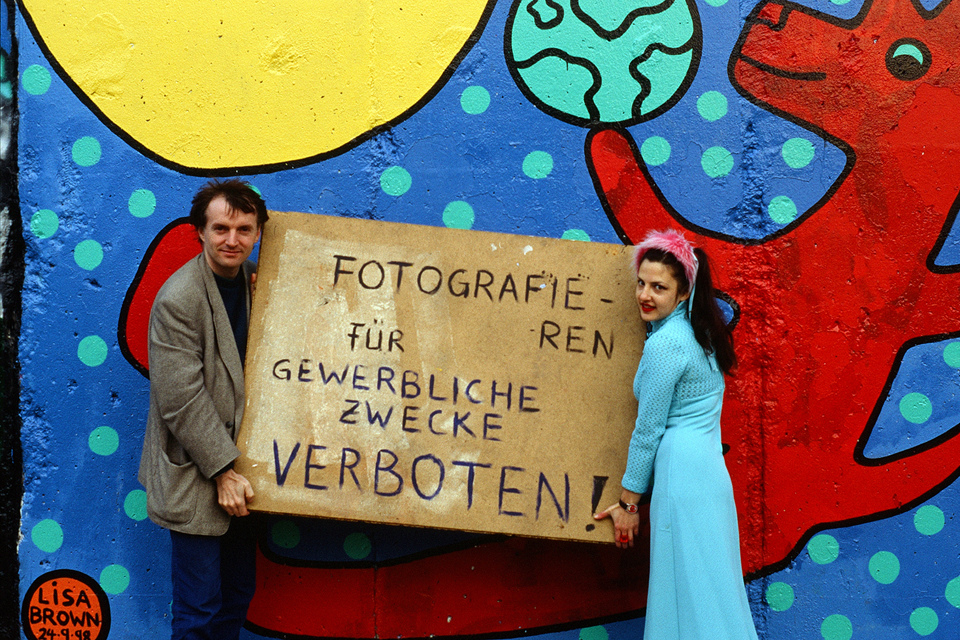 FOTOGRAFIE-
REN
FÜR
GEWERBLICHE
ZWECKE
VERBOTEN!
LiSA
BROWN
24-9-98